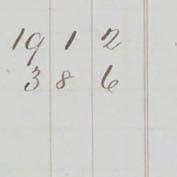 19 1 2
3 8 6